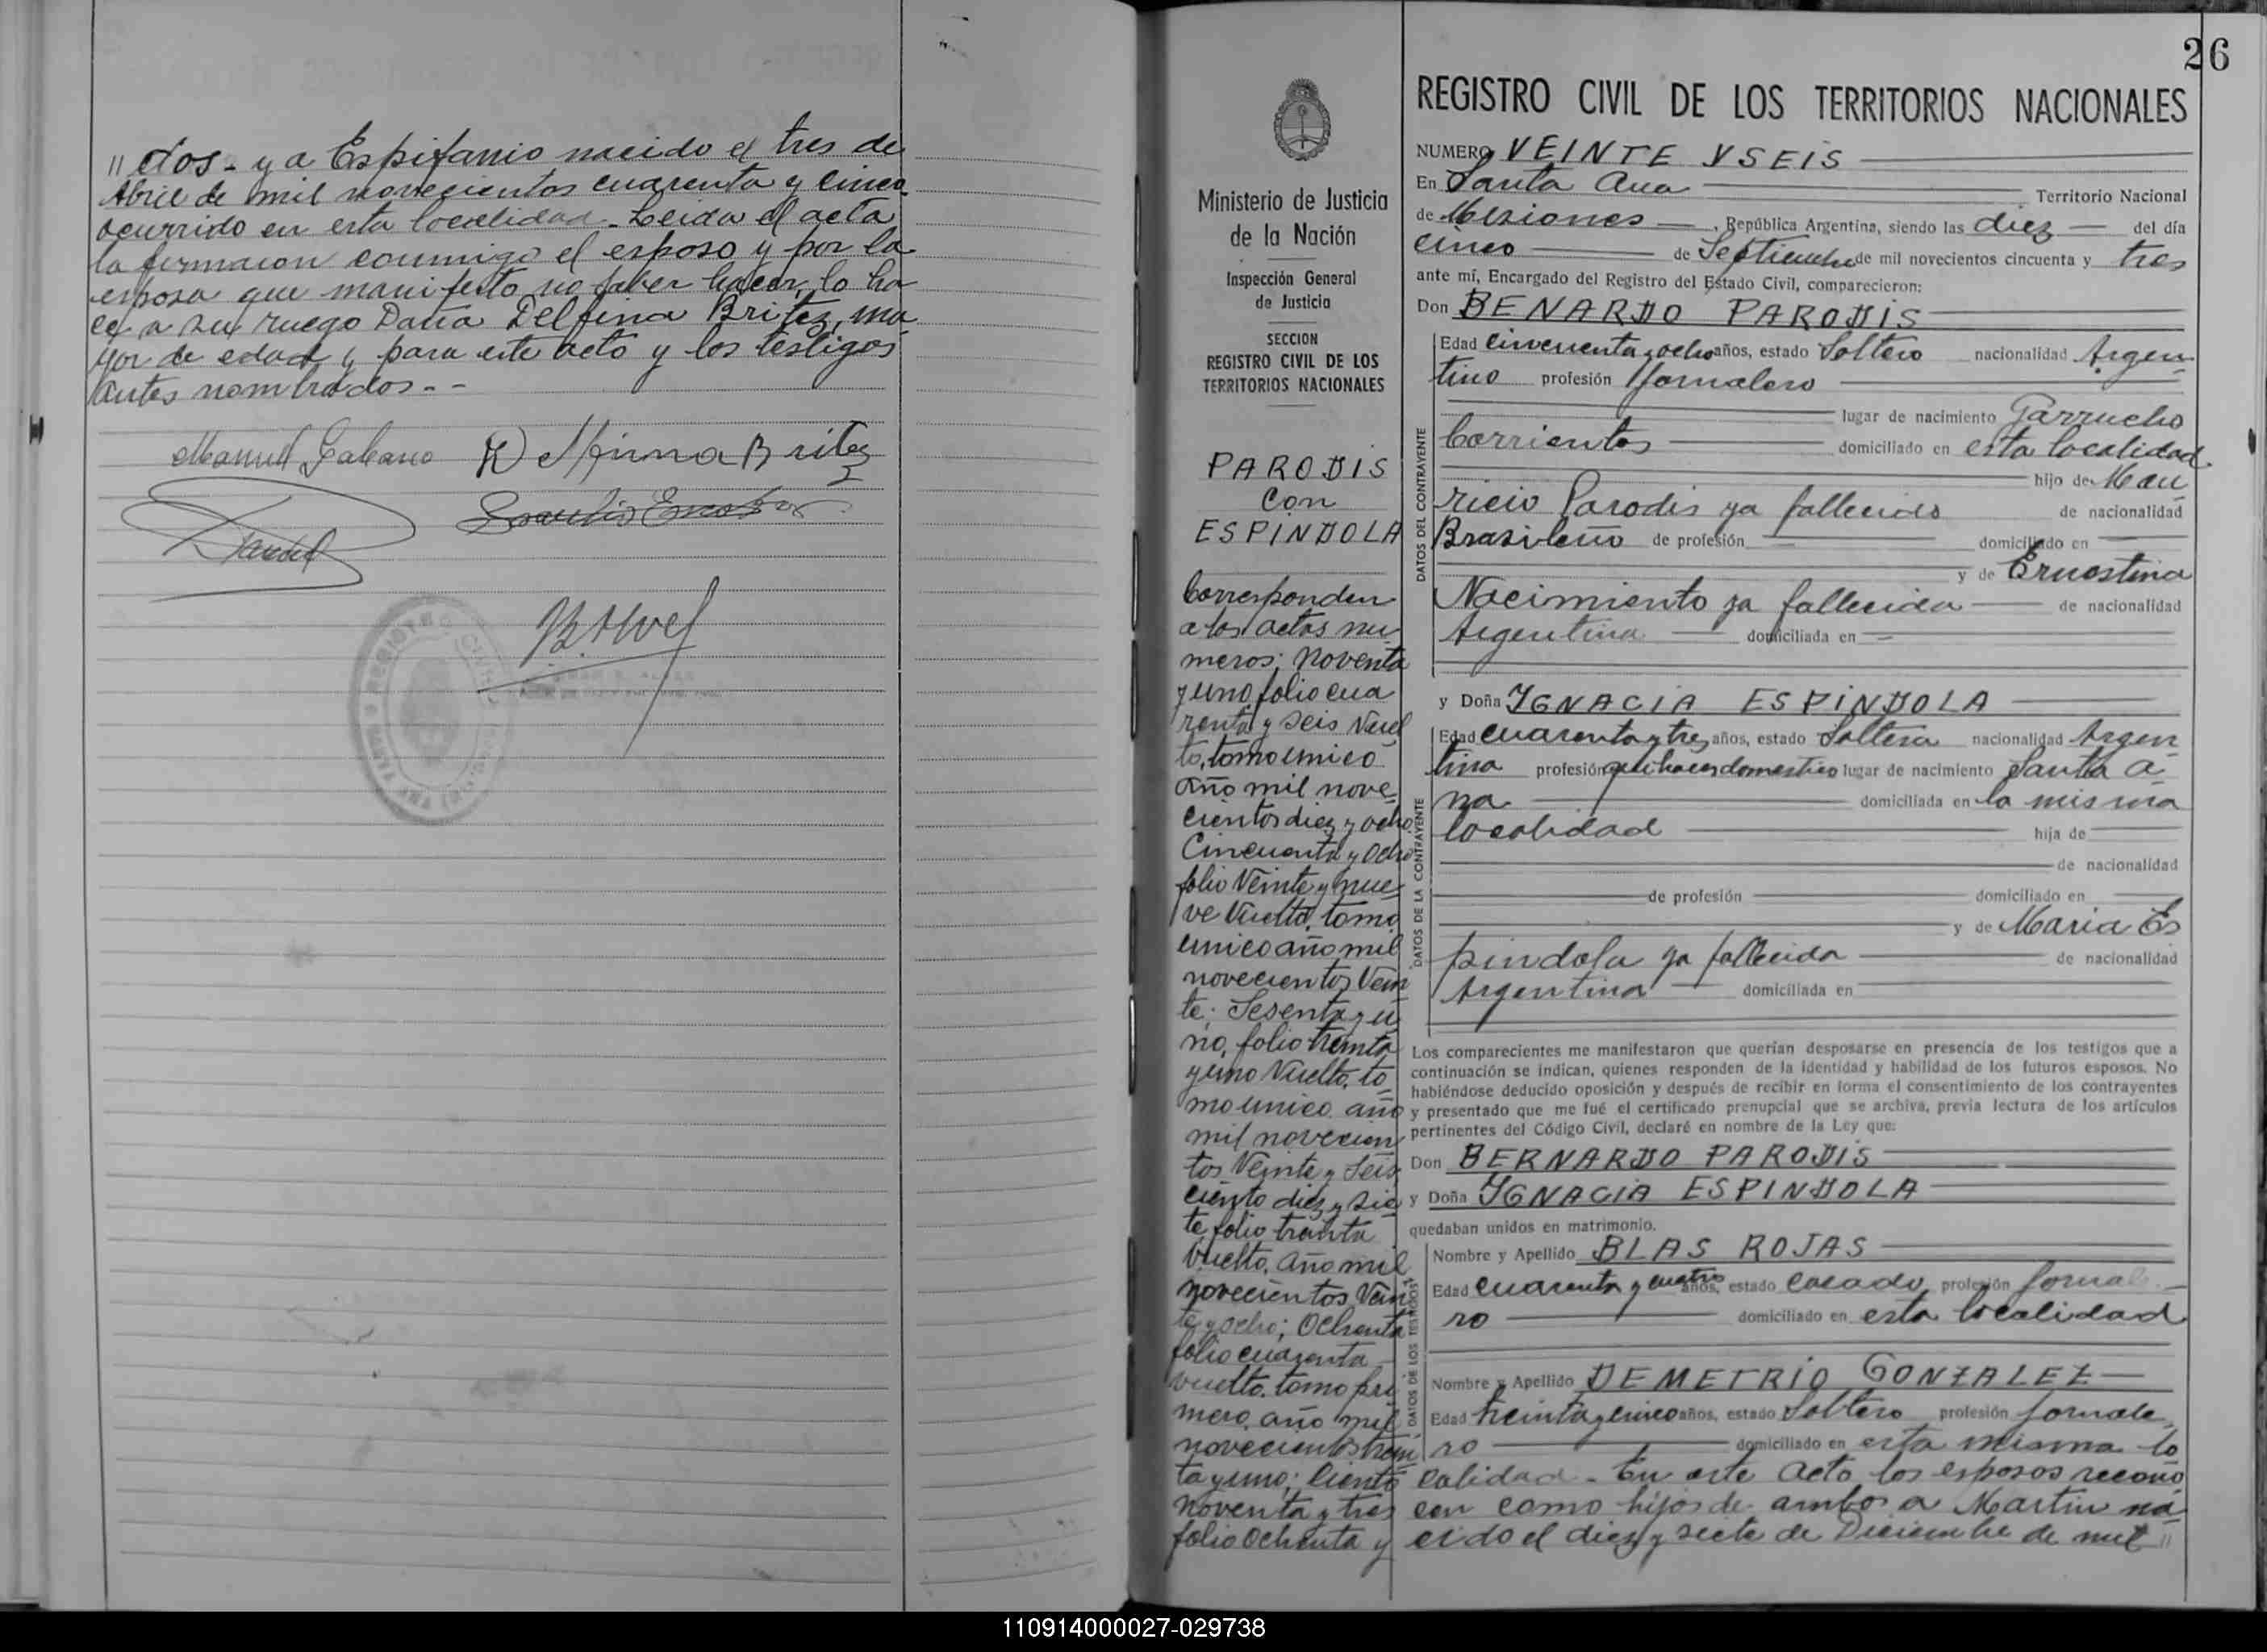 // dos - y a Espifanio nacido el tres de
Abril de mil novecientos cuarenta y cinco
ocurrido en esta localidad - Leida el acta
la firmaion conmigo el esposo y por la
esposa que manifesto no saber hacer, lo ha
ce a su ruego Doña Delfina Britez, ma
yor de edad y para este acto y los testigos
antes nombrados - -
Manuel Galeano
Britez
26
REGISTRO CIVIL DE LOS TERRITORIOS NACIONALES
Ministerio de Justicia
de la Nación
Inspección General
de Justicia
SECCION
REGISTRO CIVIL DE LOS
TERRITORIOS NACIONALES
PARODIS
con
ESPINDOLA
Corresponden
a las actas nu
meros; Noventa
y uno folio cua
renta y seis Vuel
to, tomo unico
año mil nove
cientos diez y ocho
Cincuenta y ocho
folio Veinte y nue
ve Vuelto, tomo
unico año mil
novecientos Vein
te; Sesenta y u
no, folio treinta
y uno Vuelto, to
mo unico año
mil novecien
tos Veinte y Seis
ciento diez y sie
te folio treinta
Vuelto, año mil
novecientos Vein
te y ocho; Ochenta
folio cuarenta
vuelto, tomo pri
mero, año mil
novecientos trein
ta y uno; Ciento
noventa y tres
folio ochenta y
NUMERO VEINTE Y SEIS
En Santa Ana Territorio Nacional
de Misiones, República Argentina, siendo las diez del día
cinco de Septiembre de mil novecientos cincuenta y tres
ante mí, Encargado del Registro del Estado Civil, comparecieron:
Don BENARDO PARODIS
DATOS DEL CONTRAYENTE
Edad cincuenta y ocho años, estado Soltero nacionalidad Argen
tino profesión Jornalero
lugar de nacimiento Garrucho
Corrientes domiciliado en esta localidad
hijo de Mau
ricio Parodis ya fallecido de nacionalidad
Brasileño de profesión domiciliado en
y de Ernestina
Nacimiento ya fallecida de nacionalidad
Argentina domiciliada en
y Doña YGNACIA ESPINDOLA
DATOS DE LA CONTRAYENTE
Edad cuarenta y tres años, estado Soltera nacionalidad Argen
tina profesión quehacer domestico lugar de nacimiento Santa A
na domiciliada en la misma
localidad hija de
de nacionalidad
de profesión domiciliado en
y de Maria Es
pindola ya fallecida de nacionalidad
Argentina domiciliada en
Los comparecientes me manifestaron que querían desposarse en presencia de los testigos que a
continuación se indican, quienes responden de la identidad y habilidad de los futuros esposos. No
habiéndose deducido oposición y después de recibir en forma el consentimiento de los contrayentes
y presentado que me fué el certificado prenupcial que se archiva, previa lectura de los artículos
pertinentes del Código Civil, declaré en nombre de la Ley que:
Don BERNARDO PARODIS
y Doña YGNACIA ESPINDOLA
quedaban unidos en matrimonio.
DATOS DE LOS TESTIGOS
Nombre y Apellido BLAS ROJAS
Edad cuarenta y cuatro años, estado casado, profesión Jornale
ro domiciliado en esta localidad
Nombre y Apellido DEMETRIO GONZALEZ
Edad treinta y cinco años, estado Soltero profesión Jornale
ro domiciliado en esta misma lo
calidad - En este acto los esposos recono
cen como hijos de ambos a Martin na
cido el diez y siete de Diciembre de mil //
110914000027-029738